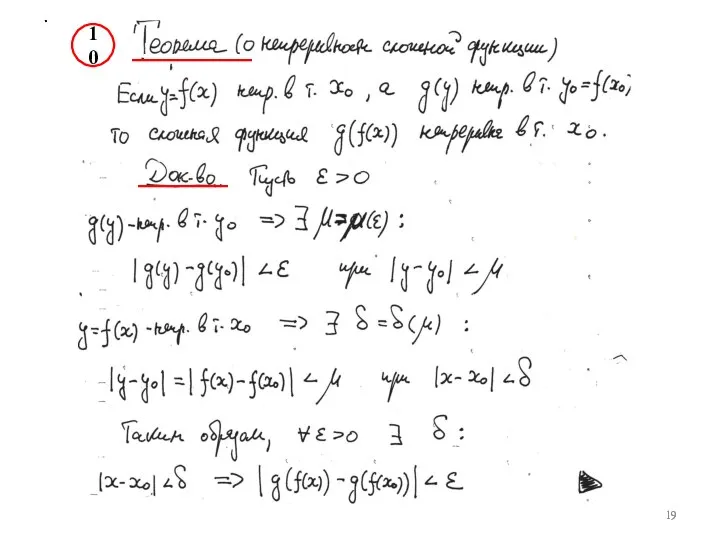 10
Теорема (о непрерывности сложной функции)
Если y=f(x) непр. в т. x₀, а g(y) непр. в т. y₀=f(x₀)
то сложная функция g(f(x)) непрерывна в т. x₀.
Док-во. Пусть ε>0
g(y)-непр. в т. y₀ => ∃ μ=μ(ε) :
|g(y)-g(y₀)| < ε при |y-y₀| < μ
y=f(x)-непр. в т. x₀ => ∃ δ=δ(μ) :
|y-y₀| = |f(x)-f(x₀)| < μ при |x-x₀| < δ
Таким образом, ∀ε>0 ∃ δ :
|x-x₀| < δ => |g(f(x))-g(f(x₀))| < ε
19